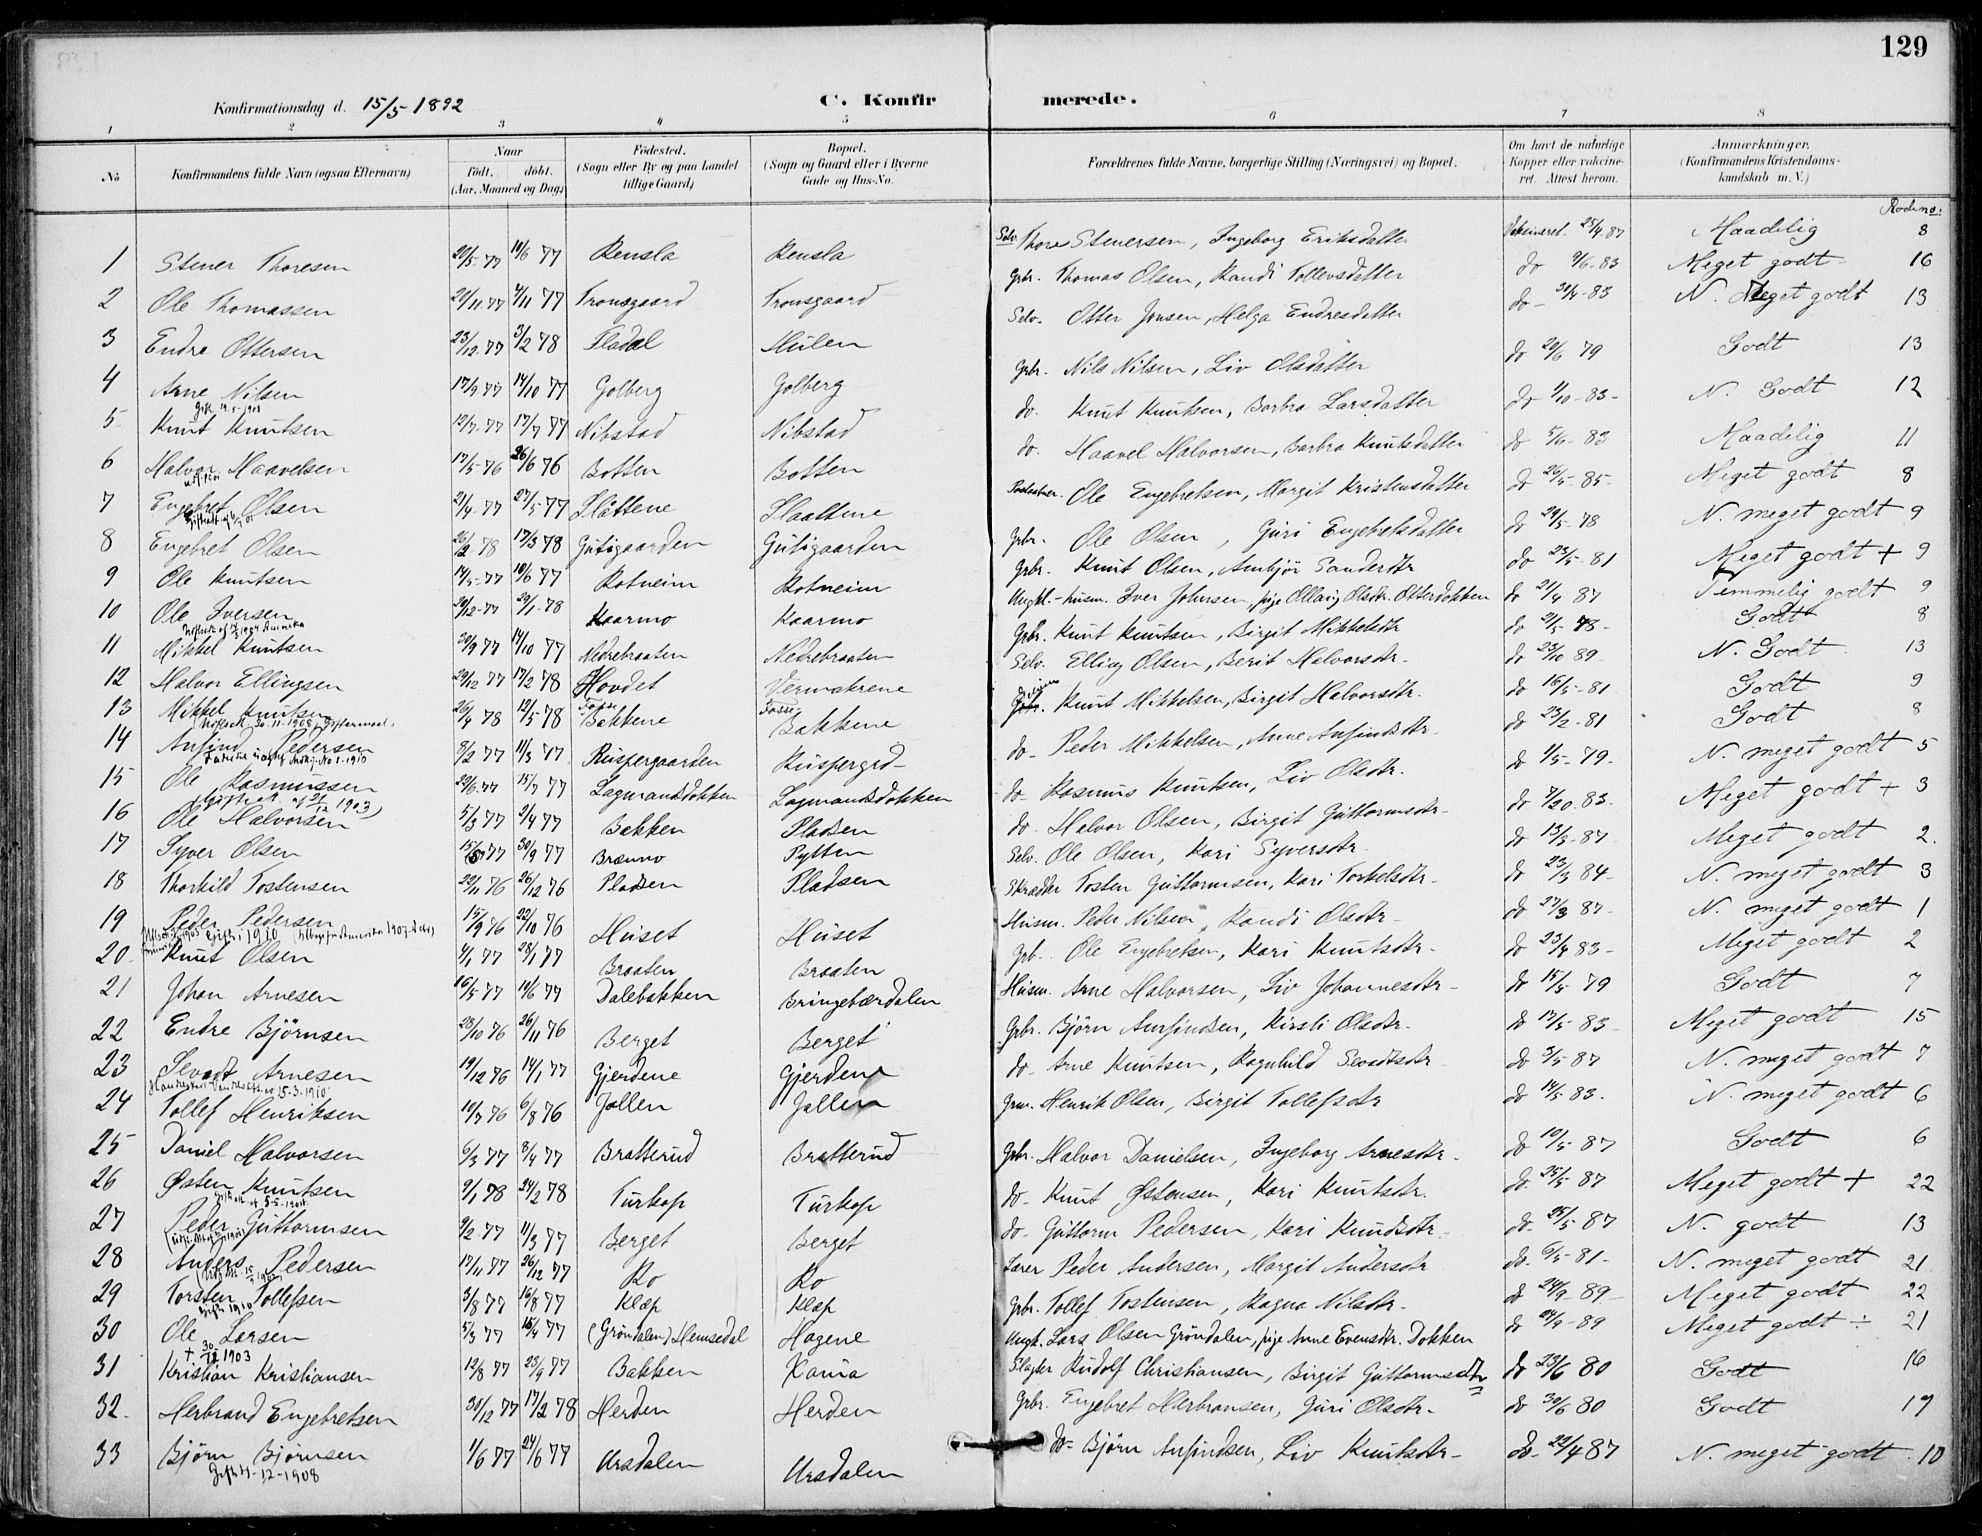 129
Konfirmationsdag d. 15/5-1892
C. Konfirmerede.
1 2 3 4 5 6 7 8
No Konfirmandens fulde Navn (ogsaa Efternavn) Naar født. døbt. (Aar, Maaned og Dag) Fødested. (Sogn eller By og paa Landet tillige Gaard) Bopæl. (Sogn og Gaard eller i Byerne Gade og Hus-No. Forældrenes fulde Navne, borgerlige Stilling (Næringsvei) og Bopæl. Om havt de naturlige Kopper eller vakcineret. Attest herom. Anmærkninger. (Konfirmandens Kristendomskundskab m. V.)
Rodeno:
1 Stener Thoresen 20/5-77 10/6 77 Rensla Rensla Selv. Thore Stenersen, Ingeborg Eriksdatter Vakcineret 25/4 87 Maadelig 8
2 Ole Thomassen /11 77 4/11 77 Tronsgaard Tronsgaard Gbr. Thomas Olsen, Randi Tollevsdatter do 9/6-83 Meget godt 16
3 Endre Ottersen 23/12-77 3/2 78 Fladal Hulen Selv. Otter Jonsen, Helga Endresdatter do - 83 N. Meget godt 13
4 Arne Nilsen 17/9 77 14/10 77 Golberg Golberg Gbr. Nils Nilsen, Liv Olsdatter do 20/6 79 Godt 13
Gift 19-5-1903
5 Knut Knutsen 12/7-77 17/7 77 Nibstad Nibstad do. Knut Knutsen, Barbra Larsdatter do 1/10-83- N. Godt 12
6 Halvor Haavelsen 17/5-76 26/6 76 Botten Botten do. Haavel Halvorsen, Barbra Knutsdatter do 5/6-83 Maadelig 11
7 Engebret Olsen 21/4-77 27/5-77 Slåttene Slaattene Ole Engebretsen, Margit Kristensdatter do 26/5-85- Meget godt 8
8 Engebret Olsen 26/2 78 17/3 78 Gutigaarden Gutigaarden Gbr. Ole Olsen, Guri Engebretsdatter do 24/5-78 N. meget godt 9
9 Ole Knutsen 14/5-77 10/6 77 Rotneim Rotneim Gbr. Knut Olsen, Ambjør Sandersdtr do 23/5-81 Meget godt + 9
10 Ole Iversen 20/12-77 20/1-78 Kaarmo Kaarmo Ungkl.-husm. Iver Johnsen, pige Ollaug Olsdtr. Otterdokken do 21/4 87 Temmelig godt 9
Amerika
11 Mikkel Knutsen 20/9 77 14/10 77 Nedrebraaten Nedrebraaten Gbr. Knut Knutsen, Birgit Mikkelsdtr do 21/5-78- Godt 8
12 Halvor Ellingsen 29/12 77 17/2 78 Hovdet Vermakrene Selv. Elling Olsen, Berit Halvorsdtr. do 23/10 89 N. Godt 13
13 Mikkel Knutsen 26/4 78 12/5 78 Bakkene Fosse Bakkene Knut Mikkelsen, Birgit Halvorsdtr. do 16/5-81 Godt 9
30-11-1908
14 Anfind Pedersen 3/2 77 11/3 77 Ruspergaarden Ruspergrd- do- Peder Mikkelsen, Anne Anfindsdtr do 23/2-81 Godt 8
1-1910
15 Ole Rasmussen 22/6-77 15/7 77 Lagmandsdokken Lagmandsdokken do- Rasmus Knutsen, Liv Olsdtr. do 1/5-79- N. meget godt 5
1903)
16 Ole Halvorsen 5/3 77 2/4 77 Bakken Pladsen do- Halvor Olsen, Birgit Guttormsdtr- do 83- Meget godt + 3
17 Syver Olsen 77 30/9 77 Brænno Pytten Selv. Ole Olsen, Kari Syversdtr. do 13/3-87- Meget godt 2.
18 Thorkild Tostensen 22/11 76 26/12 76 Pladsen Pladsen Skrædder Tosten Guttormsen, Kari Torkelsdtr- do 23/3 84- N. meget godt 3
19 Peder Pedersen 15/9 76 22/10 76 Huset Huset Husm. Peder Nilsen, Randi Olsdtr- do 27/3 87- N. meget godt 1
Gift i 1910
20. Knut Olsen 4/1 77 28/1 77 Braaten Braaten Gb. Ole Engebretsen, Kari Knutsdtr- do 23/4 83- Meget godt 2
21 Johan Arnesen 16/5 77 10/6 77 Dalebakken Bringebærdalen Husm. Arne Halvorsen, Liv Johannesdtr- do 15/5 79 Godt 7
22 Endre Bjørnsen 28/10 76 26/11 76 Berget Berget Gbr. Bjørn Anfindsen, Kirsti Olsdtr. do 17/5-83- Meget godt 15
23 Sevadt Arnesen 19/12 76 14/1 77 Gjerdene Gjerdene do- Arne Knutsen, Ragnhild Sevadtsdtr do 3/5-87 N. meget godt 7
15-3-1910
24 Tollef Henriksen 10/7 76 6/8 76 Jallen Jallen Henrik Olsen, Birgit Tollefsdtr do 14/5 83. N. meget godt 6
25 Daniel Halvorsen 6/3 77 3/4 77 Bratterud Bratterud Gbr. Halvor Danielsen, Ingeborg Arnesdtr- do 10/5-87 Godt 6
26 Østen Knutsen 9/1 78 24/2 78 Turkop Turkop do- Knut Østensen, Kari Knutsdtr. do 25/5 87 Meget godt + 22
27 Peder Guttormsen 3/2 77 11/3 77 Berget Berget do- Guttorm Pedersen, Kari Knudsdtr- do- 25/5 87 N. godt 13
28 Anders Pedersen 17/11 77 26/12 77 Ro Ro Lærer Peder Andersen, Margit Andersdtr do. 6/5-81- N. meget godt 21
29 Torsten Tollefsen 3/8 77 16/8 77 Kløp Kløp Gbr. Tollef Tostensen, Ragna Nilsdtr- do 24/9-89- Meget godt 22
Gift 1910
30 Ole Larsen 5/3 77 15/4 77 (Grøndalen) Hemsedal Hagene Ungk. Lars Olsen Grøndalen, pige Anne Evensdtr. Dokken do 24/9-89 Meget godt ÷ 21
+ 30/12 1903
31 Kristian Kristiansen 12/8 77 23/9 77 Bakken Xania Slagter Rudolf Christiansen, Birgit Guttormsdtr do 23/6 80 Godt 16
32. Herbrand Engebretsen 30/12 77 17/2 78 Herden Herden Gbr. Engebret Herbransen, Guri Olsdtr- do 30/6 80 Godt 19
33 Bjørn Bjørnsen 1/6 77 24/6 77 Ursdalen Ursdalen do- Bjørn Anfindsen, Liv Knutsdtr- do- 22/4 87 N. meget godt 10
Gift 4-12-1908